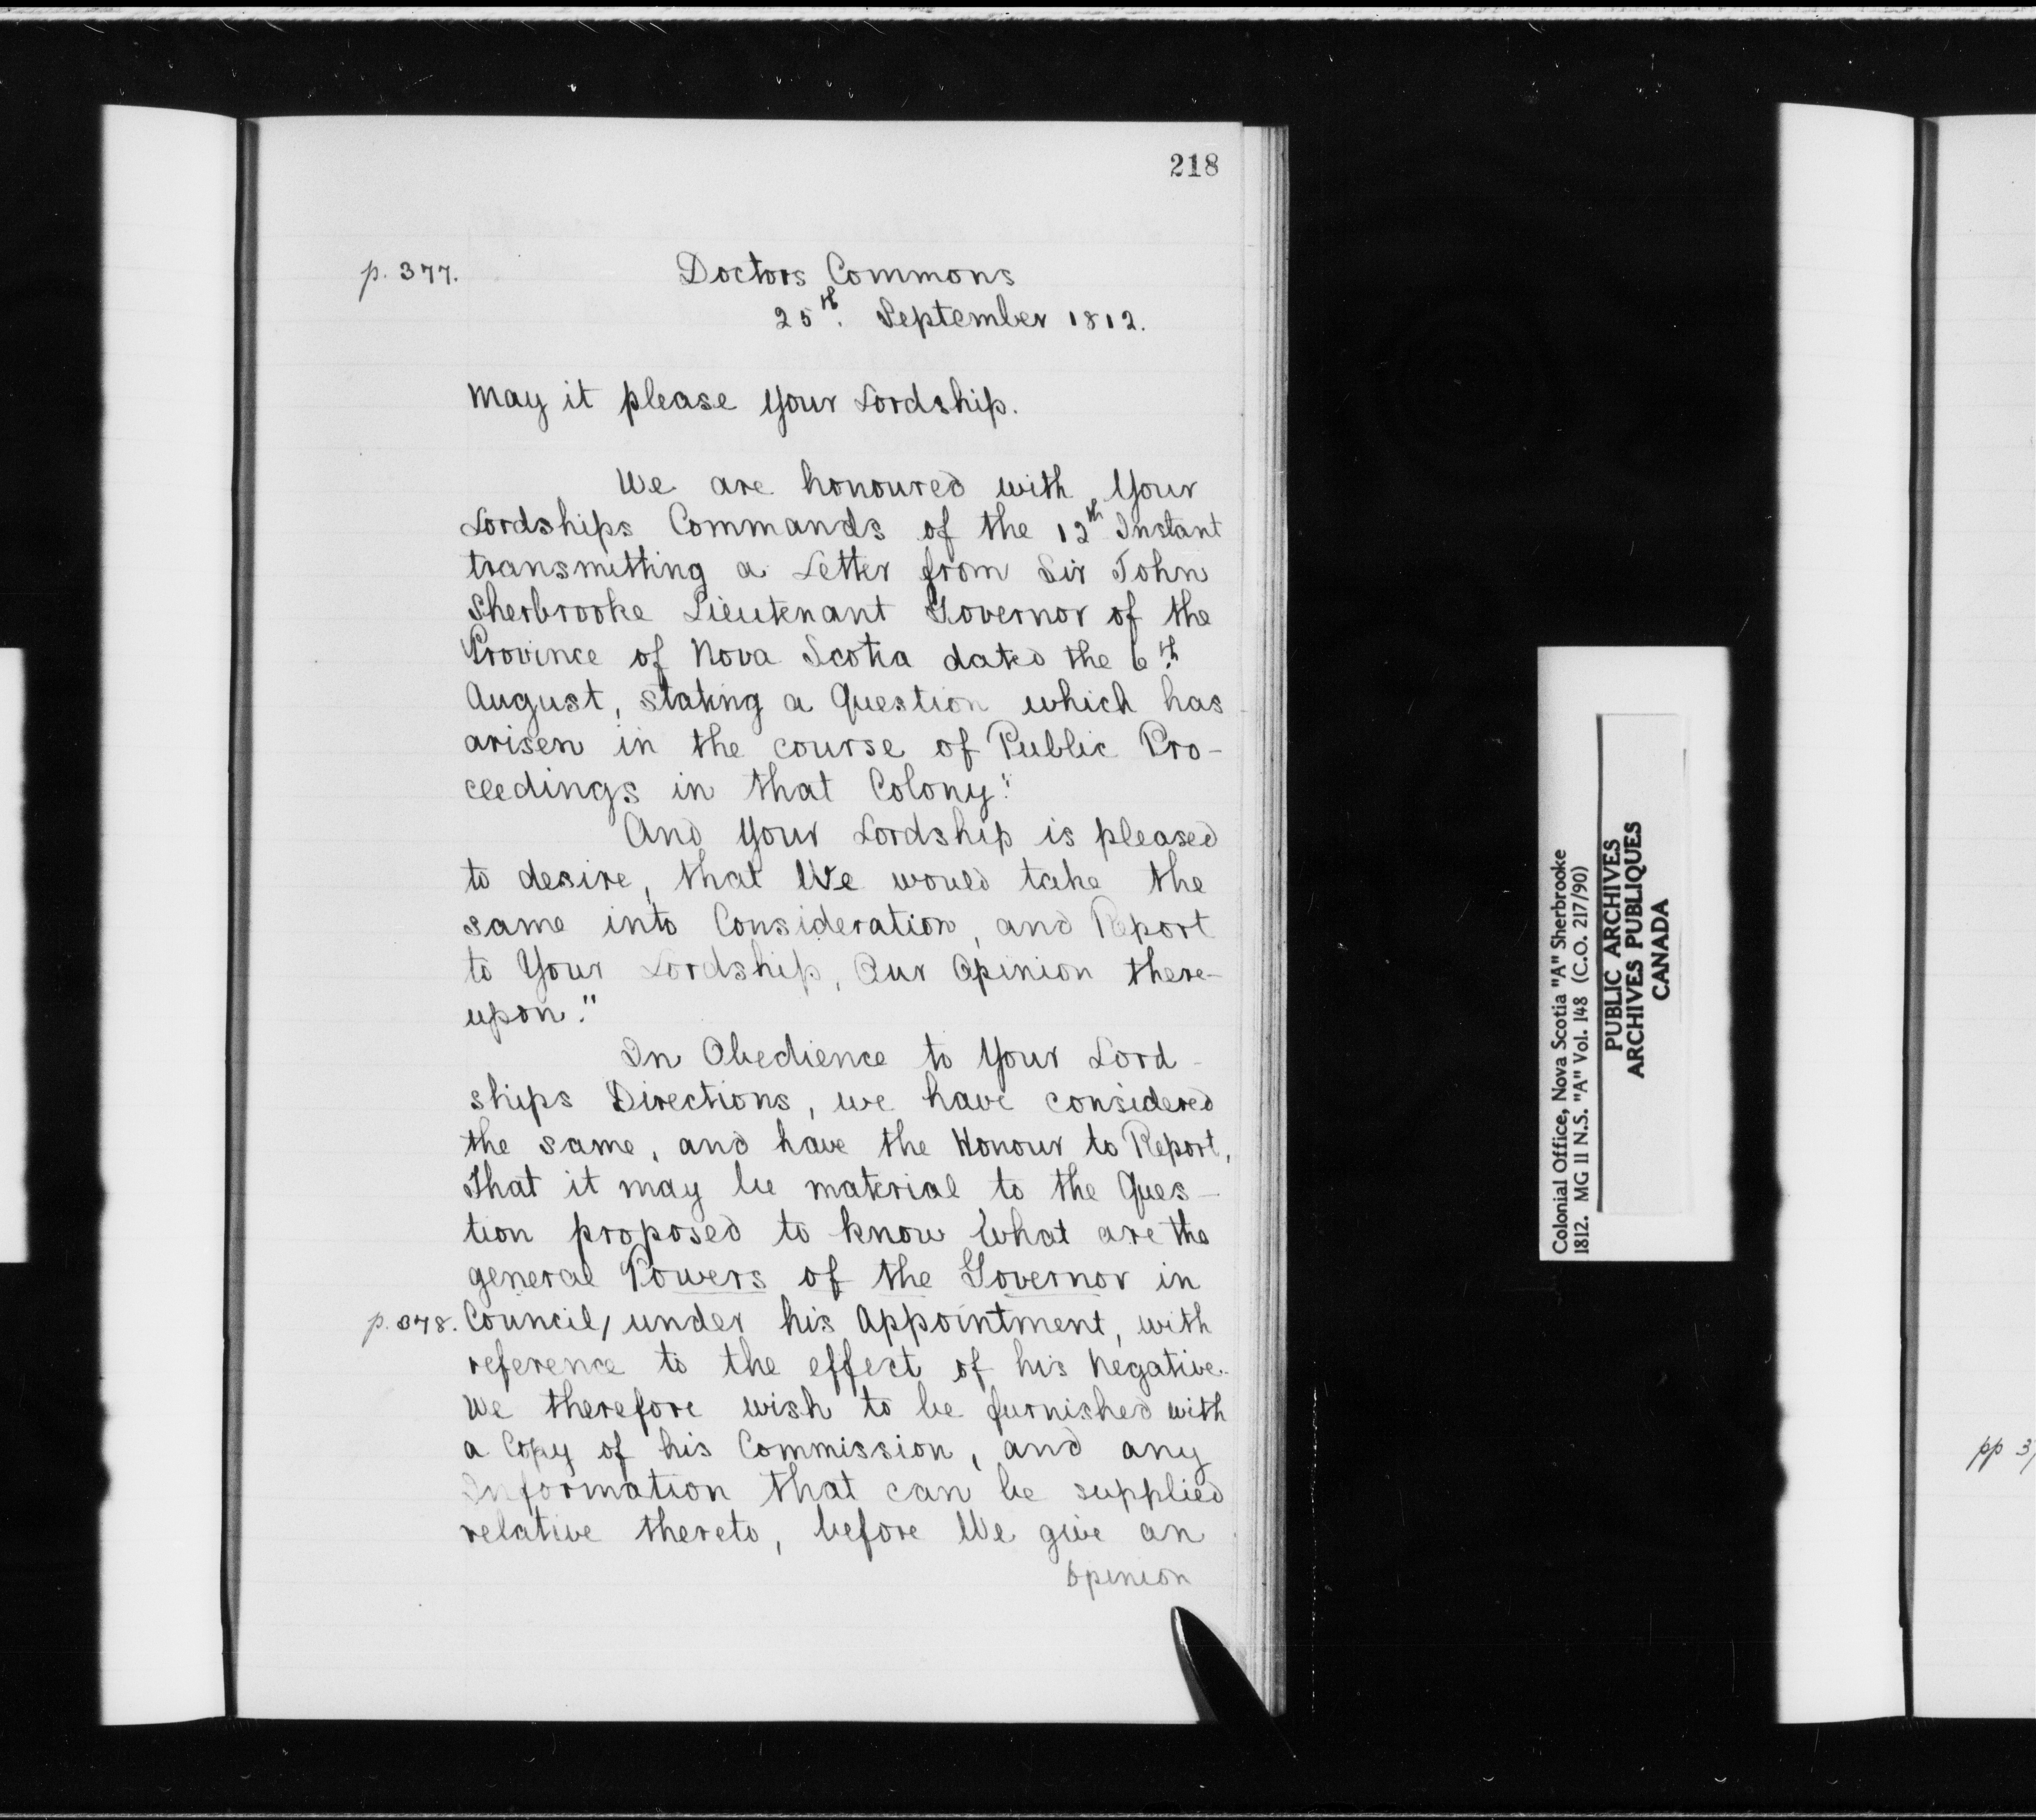 218
p. 377.
Doctors Commons
25th. September 1812.
May it please Your Lordship.
We are honoured with Your
Lordships Commands of the 12th Instant
transmitting a Letter from Sir John
Sherbrooke Lieutenant Governor of the
Province of Nova Scotia dated the 6th.
August, stating a Question which has
arisen in the course of Public Pro-
ceedings in that Colony."
And Your Lordship is pleased
to desire, that We would take the
same into Consideration, and Report
to Your Lordship, Our Opinion there-
upon."
In Obedience to Your Lord-
ships Directions, we have considered
the same, and have the Honour to Report,
That it may be material to the Ques-
tion proposed to know What are the
general Powers of the Governor in
p. 378. Council, under his Appointment, with
reference to the effect of his Negative.
We therefore wish to be furnished with
a Copy of his Commission, and any
Information that can be supplied
relative thereto, before We give an
Opinion
Colonial Office, Nova Scotia "A" Sherbrooke
1812. MG 11 N.S. "A" Vol. 148 (C.O. 217/90)
PUBLIC ARCHIVES
ARCHIVES PUBLIQUES
CANADA